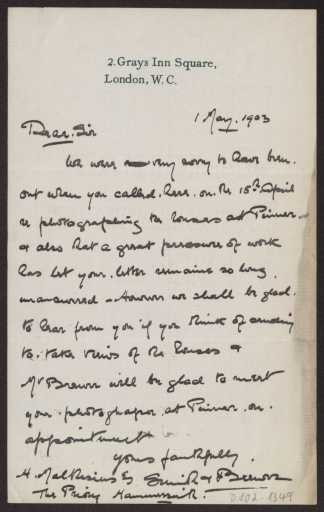 2. Grays Inn Square,
London, W. C.
1 May. 1903
Dear Sir
We were very sorry to have been
out when you called here on the 15th April
re photographing the houses at Pinner
& also that a great pressure of work
has let your letter remain so long
unanswered. However we shall be glad
to hear from you if you think of sending
to take views of the houses &
Mr Brewer will be glad to meet
your photographer at Pinner on
appointment
Yours faithfully.
H. Muthesius Esq Smith & Brewer
The Priory Hammersmith.
D 102-1349